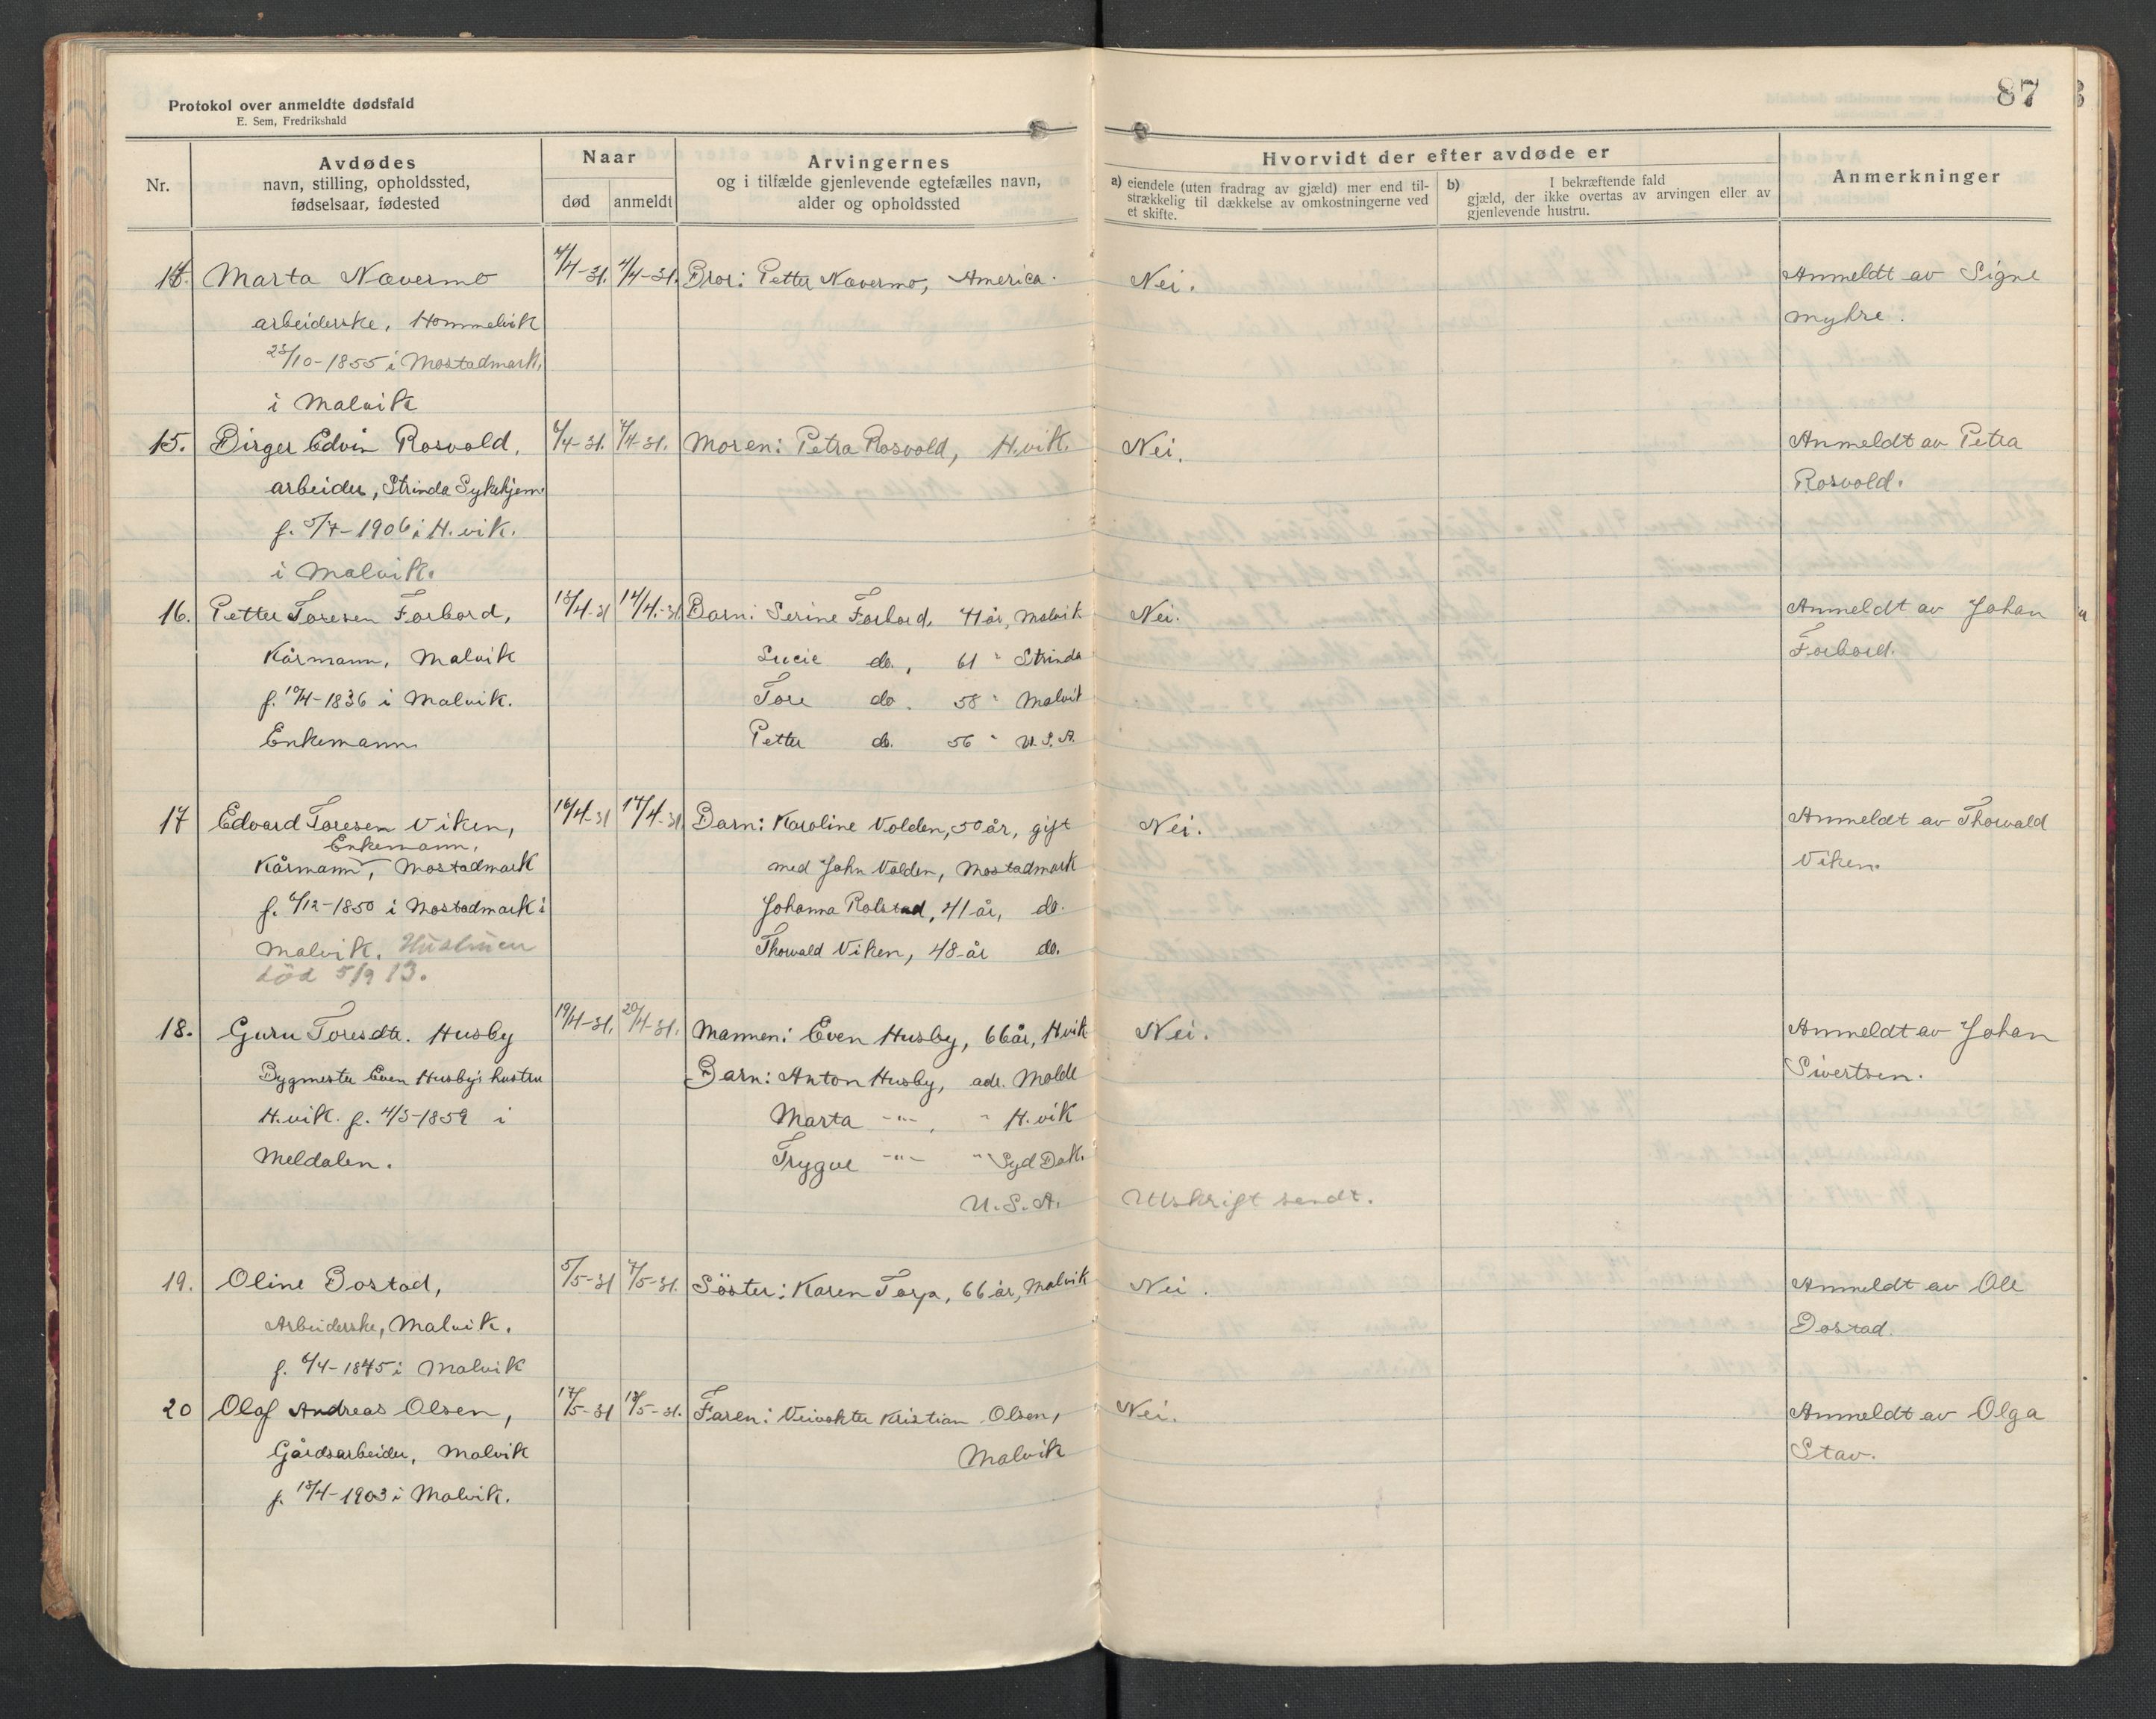 87
Protokol over anmeldte dødsfald
E. Sem, Fredrikshald
Nr.
Avdødes
navn, stilling, opholdssted,
fødselsaar, fødested
Naar
død
anmeldt
Arvingernes
og i tilfælde gjenlevende egtefælles navn,
alder og opholdssted
Hvorvidt der efter avdøde er
a) eiendele (uten fradrag av gjæld) mer end til-
strækkelig til dækkelse av omkostningerne ved
et skifte.
b) I bekræftende fald
gjæld, der ikke overtas av arvingen eller av
gjenlevende hustru.
Anmerkninger
14. Marta Nævermo 4/4-31. 4/4-31. Bror: Petter Nævermo, America. Nei. Anmeldt av Signe
arbeiderske, Hommelvik Myhre.
23/10-1855 i Mostadmark,
i Malvik
15. Birger Edvin Rosvold, 6/4-31. 7/4-31. Moren: Petra Rosvold, H.vik. Nei. Anmeldt av Petra
arbeider, Strinda Sykehjem Rosvold.
f. 5/7-1906 i H.vik.
i Malvik.
16. Petter Toresen Forbord, 13/4-31 14/4.-31. Barn: Serine Forbord, 71 år, Malvik Nei. Anmeldt av Johan
Kårmann, Malvik Lucie do., 61 " Strinda Forbord.
f. 10/4-1836 i Malvik. Tore do. 58 " Malvik
Enkemann. Petter do. 56 " U.S.A.
17 Edvard Toresen Viken, 16/4-31 17/4-31. Barn: Karoline Volden, 50 år, gift Nei. Anmeldt av Thorvald
Enkemann,
Kårmann, Mostadmark med John Volden, Mostadmark Viken.
f. 6/12-1850 i Mostadmark i Johanna Rolstad, 41 år, do.
Malvik. Hustruen Thorvald Viken, 48 år do.
död 5/9 13.
18. Guru Toresdtr. Husby 19/4-31. 20/4-31. Mannen: Even Husby, 66 år, H.vik Nei. Anmeldt av Johan
Bygmester Even Husby's hustru Barn: Anton Husby, adr. Molde Sivertsen.
H.vik. f. 4/5-1859 i Marta -"-, " H.vik
Meldalen. Trygve -"- " Syd Dak.
U.S.A. Utskrift sendt.
19. Oline Bostad, 5/5-31 7/5-31. Söster: Karen Torp, 66 år, Malvik Nei. Anmeldt av Ole
Arbeiderske, Malvik. Bostad.
f. 6/4-1845 i Malvik
20 Olaf Andreas Olsen, 17/5-31 18/5-31. Faren: Veivokter Kristian Olsen, Nei. Anmeldt av Olga
Gårdsarbeider, Malvik Malvik Stav.
f. 18/4-1903 i Malvik.